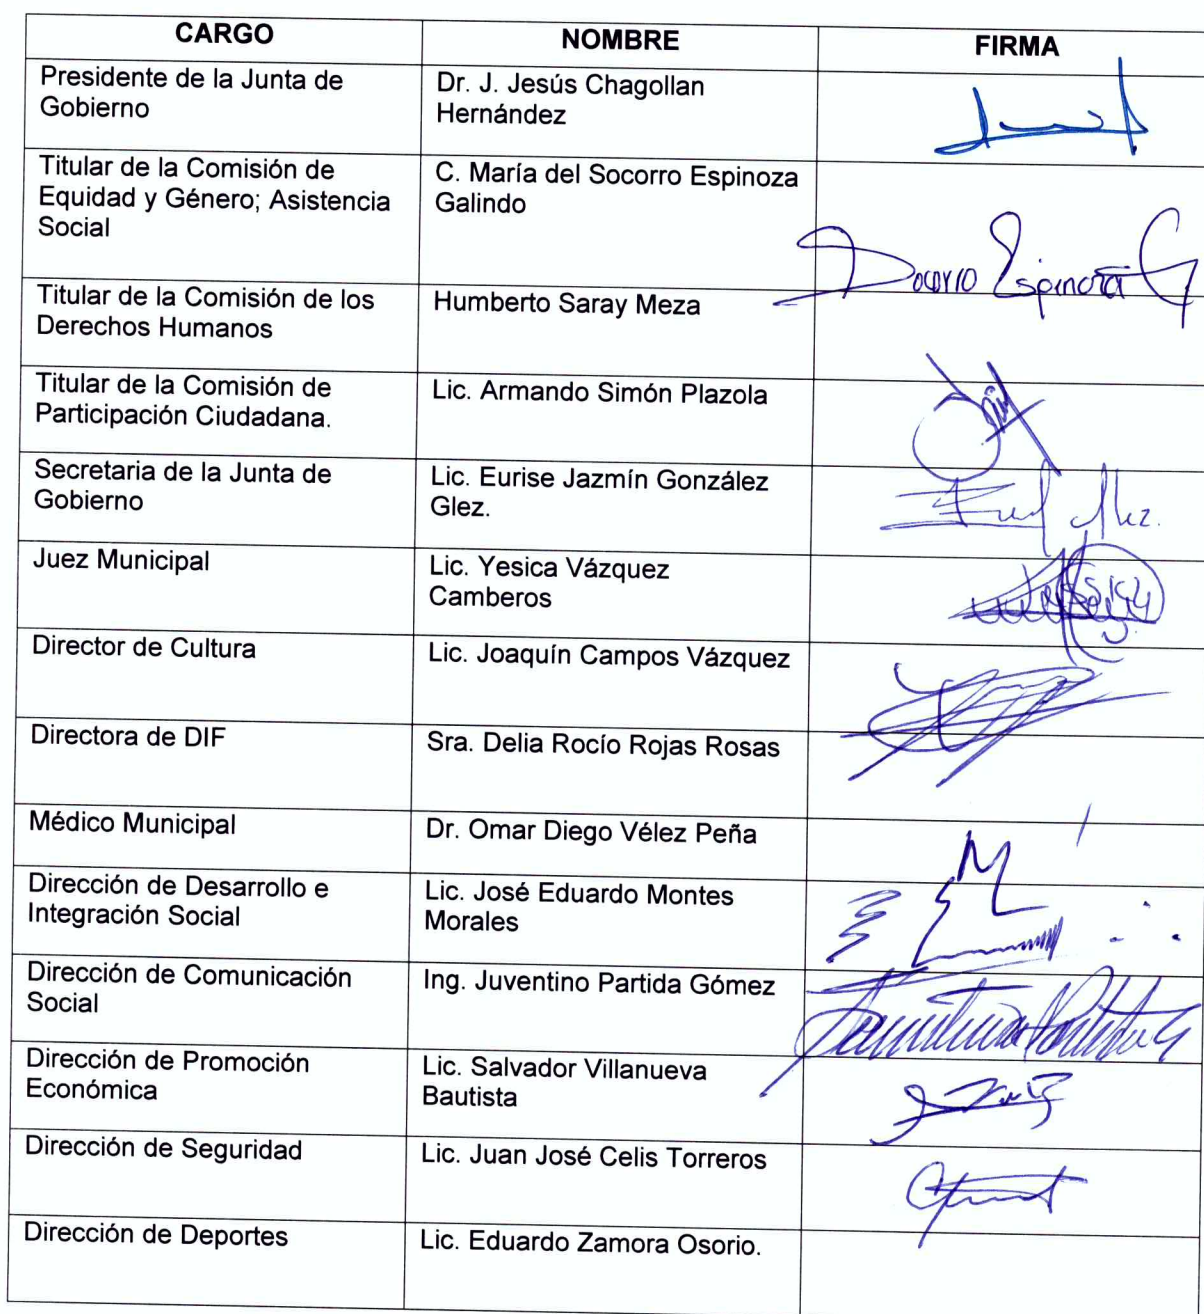 CARGO NOMBRE FIRMA
Presidente de la Junta de
Gobierno
Dr. J. Jesús Chagollan
Hernández
Titular de la Comisión de
Equidad y Género; Asistencia
Social
C. María del Socorro Espinoza
Galindo
Socorro Espinoza G
Titular de la Comisión de los
Derechos Humanos
Humberto Saray Meza
Titular de la Comisión de
Participación Ciudadana.
Lic. Armando Simón Plazola
Secretaria de la Junta de
Gobierno
Lic. Eurise Jazmín González
Glez.
Juez Municipal
Lic. Yesica Vázquez
Camberos
Director de Cultura
Lic. Joaquín Campos Vázquez
Directora de DIF
Sra. Delia Rocío Rojas Rosas
Médico Municipal
Dr. Omar Diego Vélez Peña
Dirección de Desarrollo e
Integración Social
Lic. José Eduardo Montes
Morales
Dirección de Comunicación
Social
Ing. Juventino Partida Gómez
Dirección de Promoción
Económica
Lic. Salvador Villanueva
Bautista
Dirección de Seguridad
Lic. Juan José Celis Torreros
Dirección de Deportes
Lic. Eduardo Zamora Osorio.